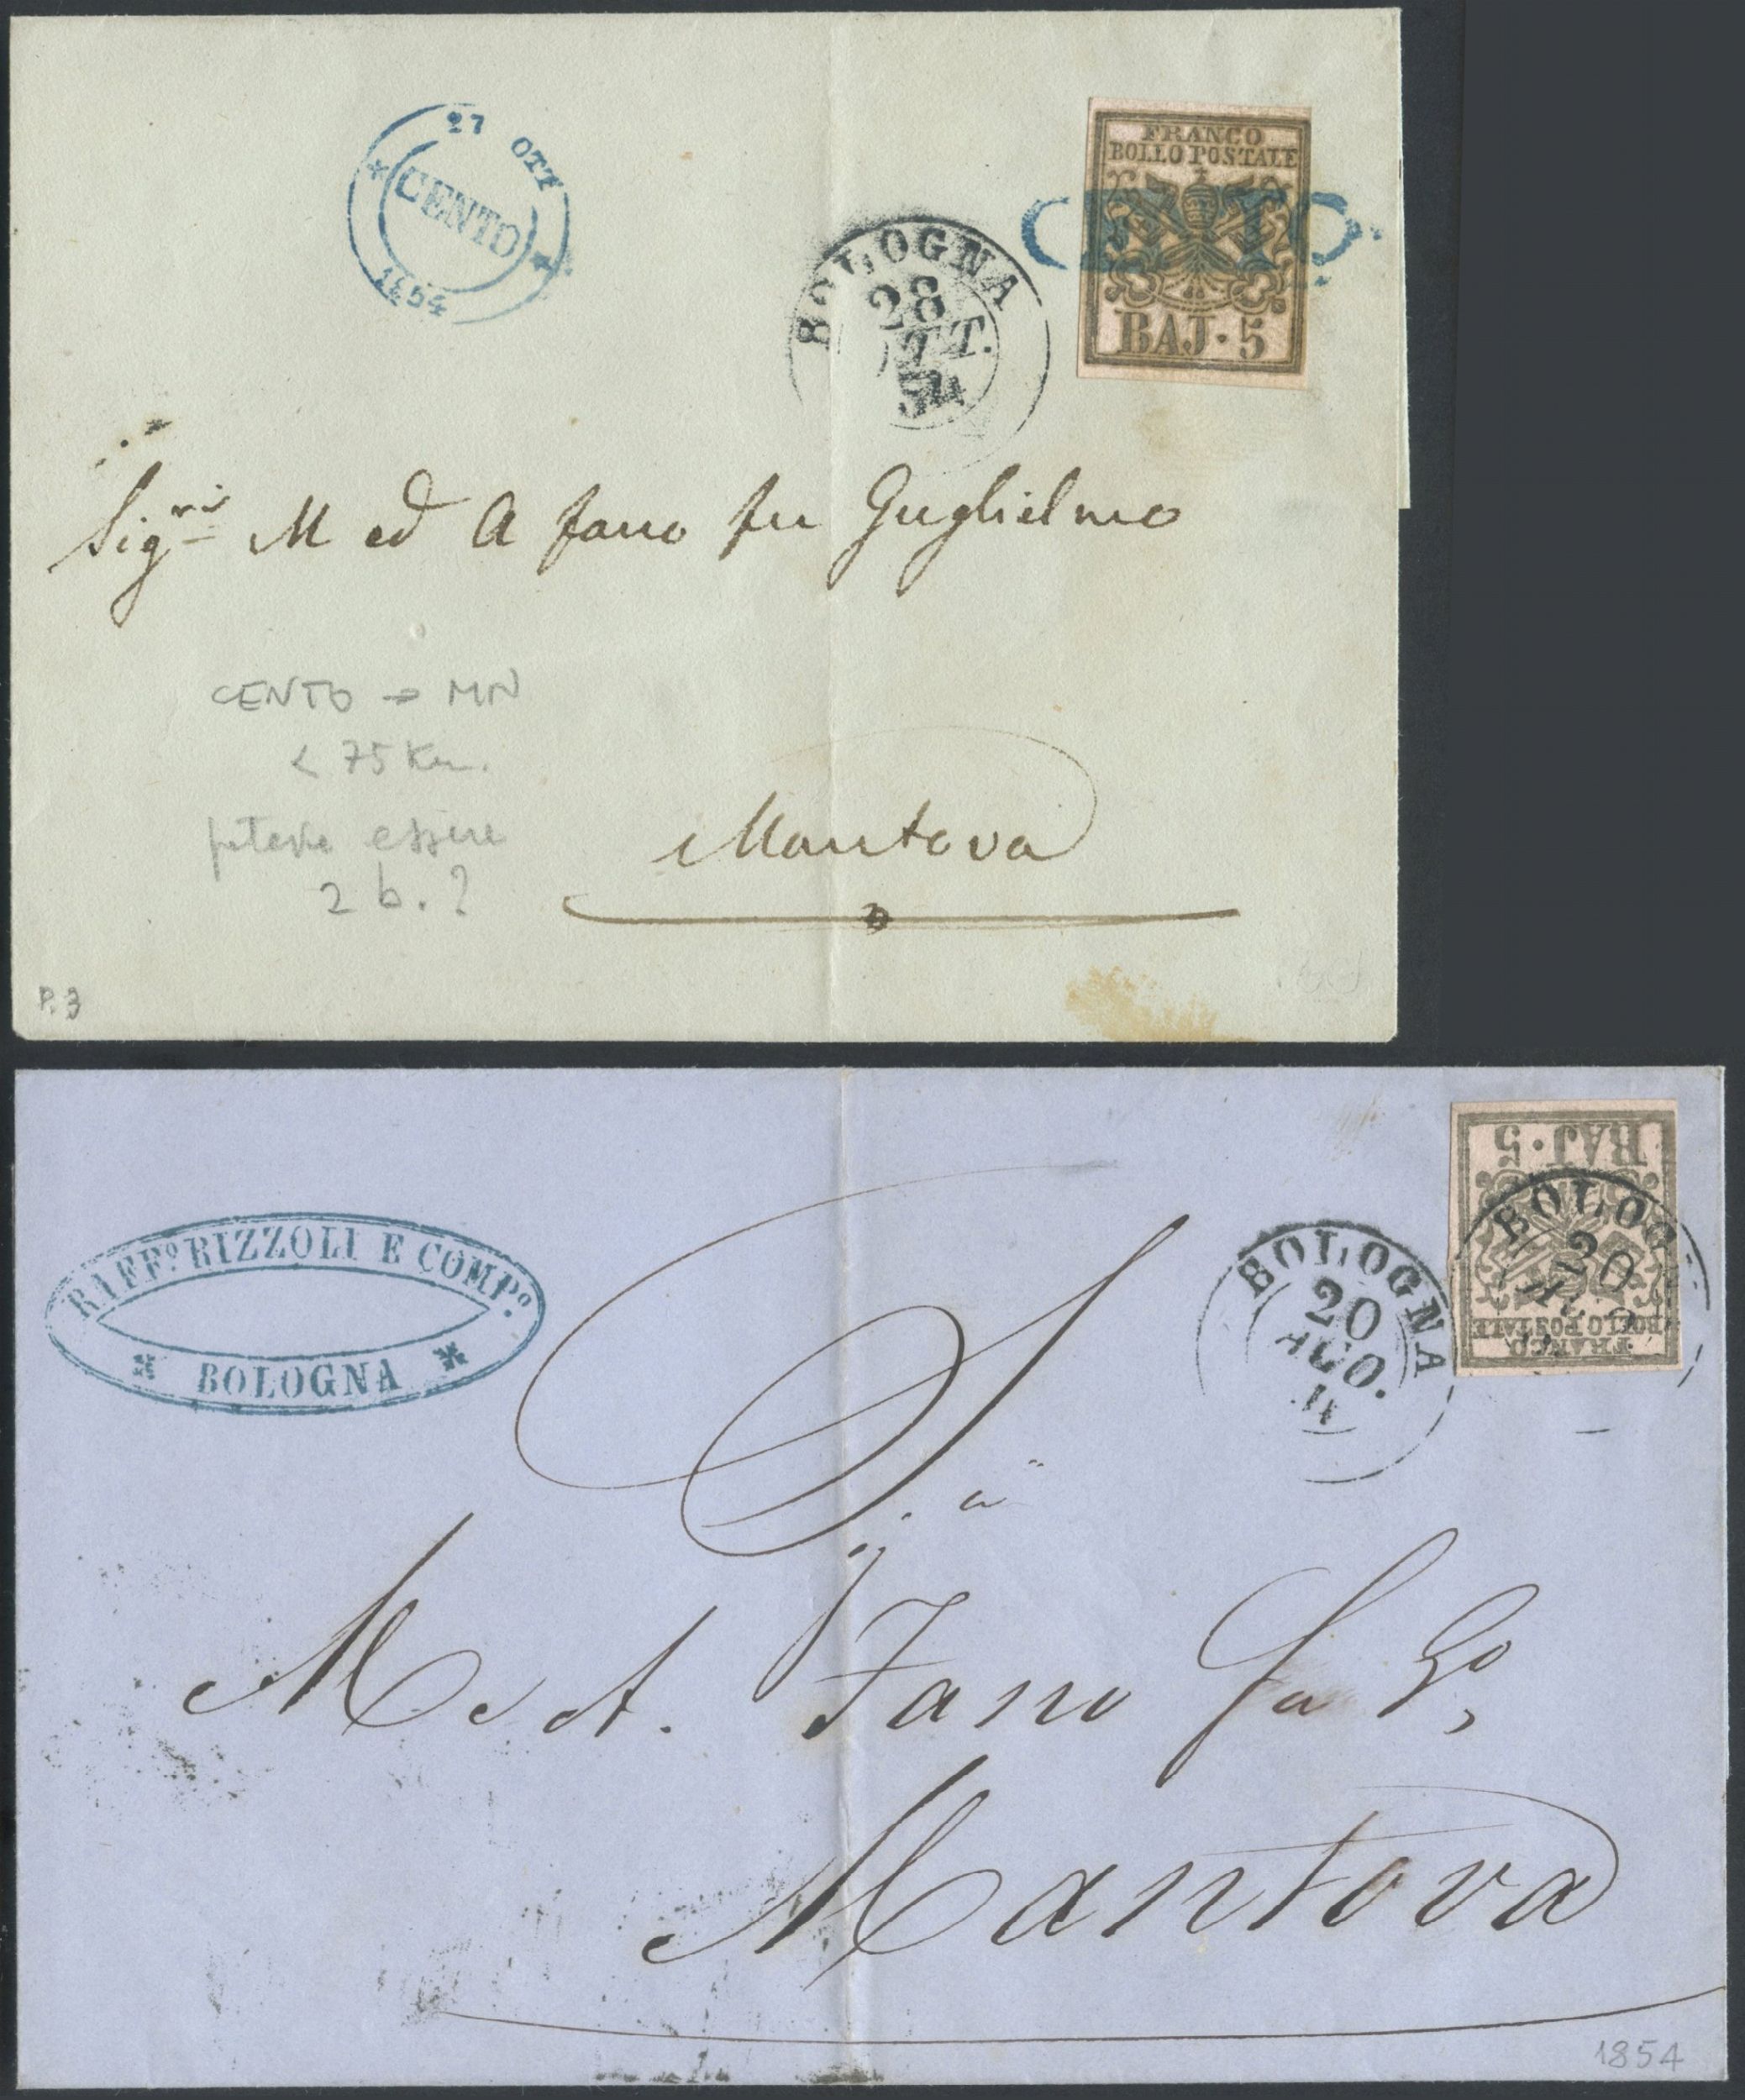 27 OTT
CENTO
1854
BOLOGNA
28
OTT.
54
FRANCO
BOLLO POSTALE
BAJ · 5
CENTO
Sig.ri M ed A Fano fu Guglielmo
CENTO → MN
< 75 Km.
poteva essere
2 b. ?
Mantova
P. 3
RAFF.º RIZZOLI E COMP.º
BOLOGNA
BOLOGNA
20
AGO.
BAJ · 5
BOLLO POSTALE
FRANCO
BOLOG
20
M. e A. Fano fu Gº,
Mantova
1854